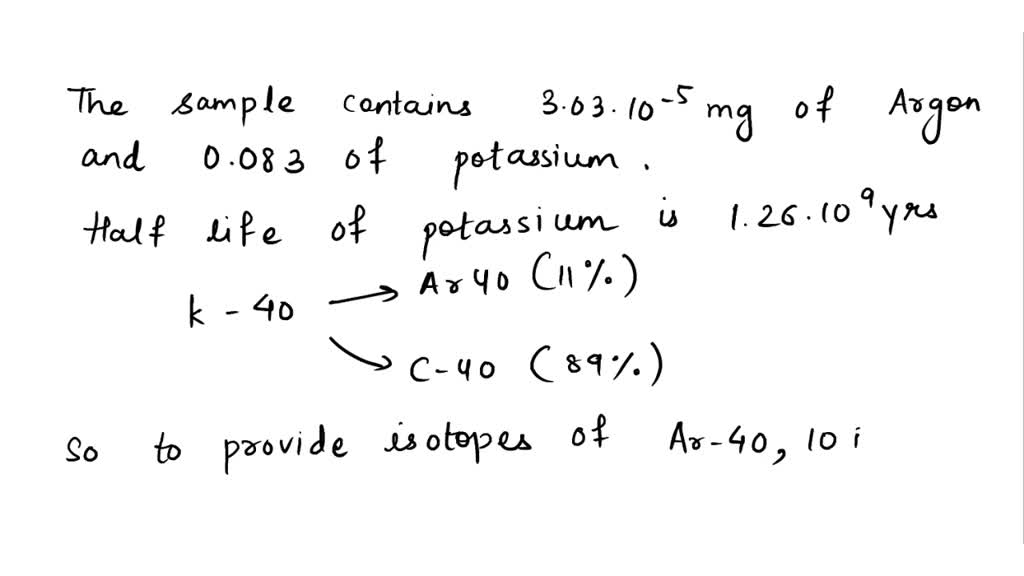 The sample contains 3.03.10⁻⁵ mg of Argon
and 0.083 of potassium.
Half life of potassium is 1.26.10⁹ yrs
k - 40 → Ar 40 (11%)
→ C-40 (89%)
So to provide isotopes of Ar-40, 10 i